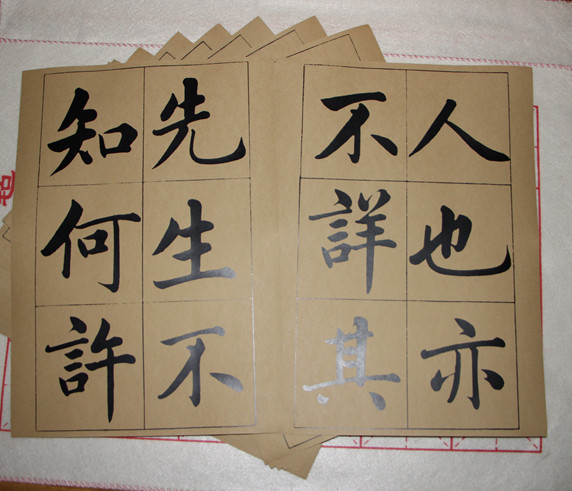 先生不
知何許
人也亦
不詳其